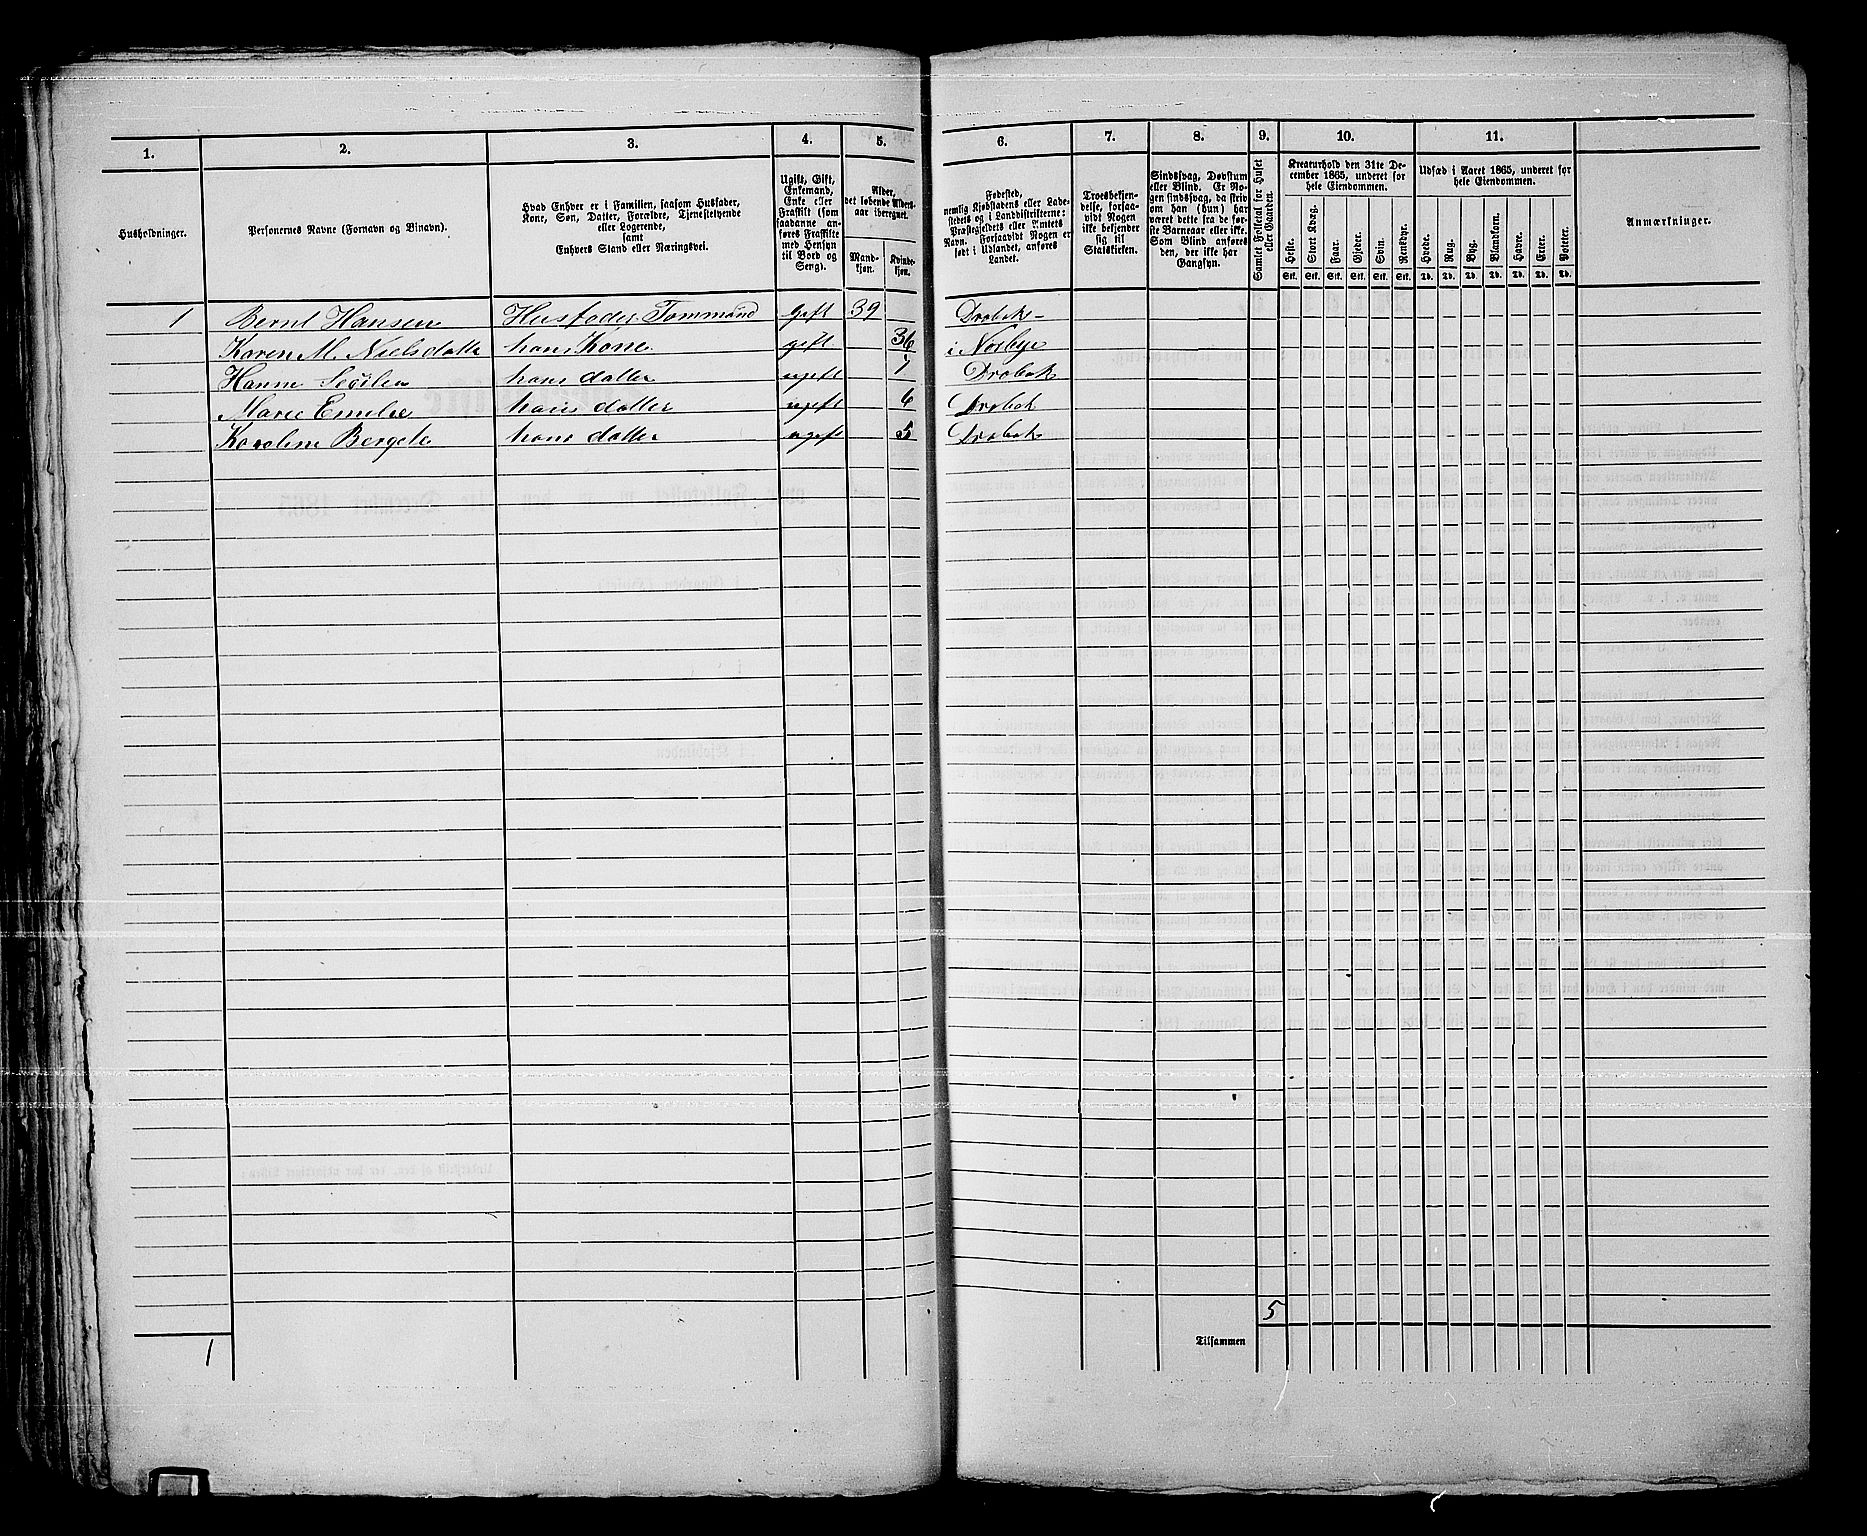 1. 2. 3. 4. 5. 6. 7. 8. 9. 10. 11.
Husholdninger.
Personernes Navne (Fornavn og Binavn).
Hvad Enhver er i Familien, saasom Husfader,
Kone, Søn, Datter, Forældre, Tjenestetyende
eller Logerende,
samt
Enhvers Stand eller Næringsvei.
Ugift, Gift,
Enkemand,
Enke eller
Fraskilt (som
saadanne an-
føres Fraskilte
med Hensyn
til Bord og
Seng).
Alder,
det løbende Alders-
aar iberegnet.
Mand-
kjøn.
Kvinde-
kjøn.
Fødested,
nemlig Kjøbstadens eller Lade-
stedets og i Landdistrikterne:
Præstegjeldets eller Amtets
Navn. Forsaavidt Nogen er
født i Udlandet, anføres
Landet.
Troesbekjen-
delse, forsaa-
vidt Nogen
ikke bekjender
sig til
Statskirken.
Sindssvag, Døvstum
eller Blind. Er No-
gen sindssvag, da skrives
om han (hun) har
været dette fra de før-
ste Barneaar eller ikke.
Som Blind anføres
den, der ikke har
Gangsyn.
Samlet Folketal for Huset
eller Gaarden.
Kreaturhold den 31te De-
cember 1865, underet for
hele Eiendommen.
Heste. Stort Kvæg. Faar. Gjeder. Svin. Rensdyr.
Stk. Stk. Stk. Stk. Stk. Stk.
Udsæd i Aaret 1865, underet for
hele Eiendommen.
Hvede. Rug. Byg. Blandkorn. Havre. Erter. Poteter.
Td. Td. Td. Td. Td. Td. Td.
Anmærkninger.
1 Bernt Hansen Husfader, Tømmand gift 39 Drøbak
Karen M. Nielsdatter hans Kone gift 36 i Nesbye
Hanne hans datter ugift 7 Drøbak
Marie Emilie hans datter ugift 6 Drøbak
Karoline Bergete hans datter ugift 5 Drøbak
5
Tilsammen
1